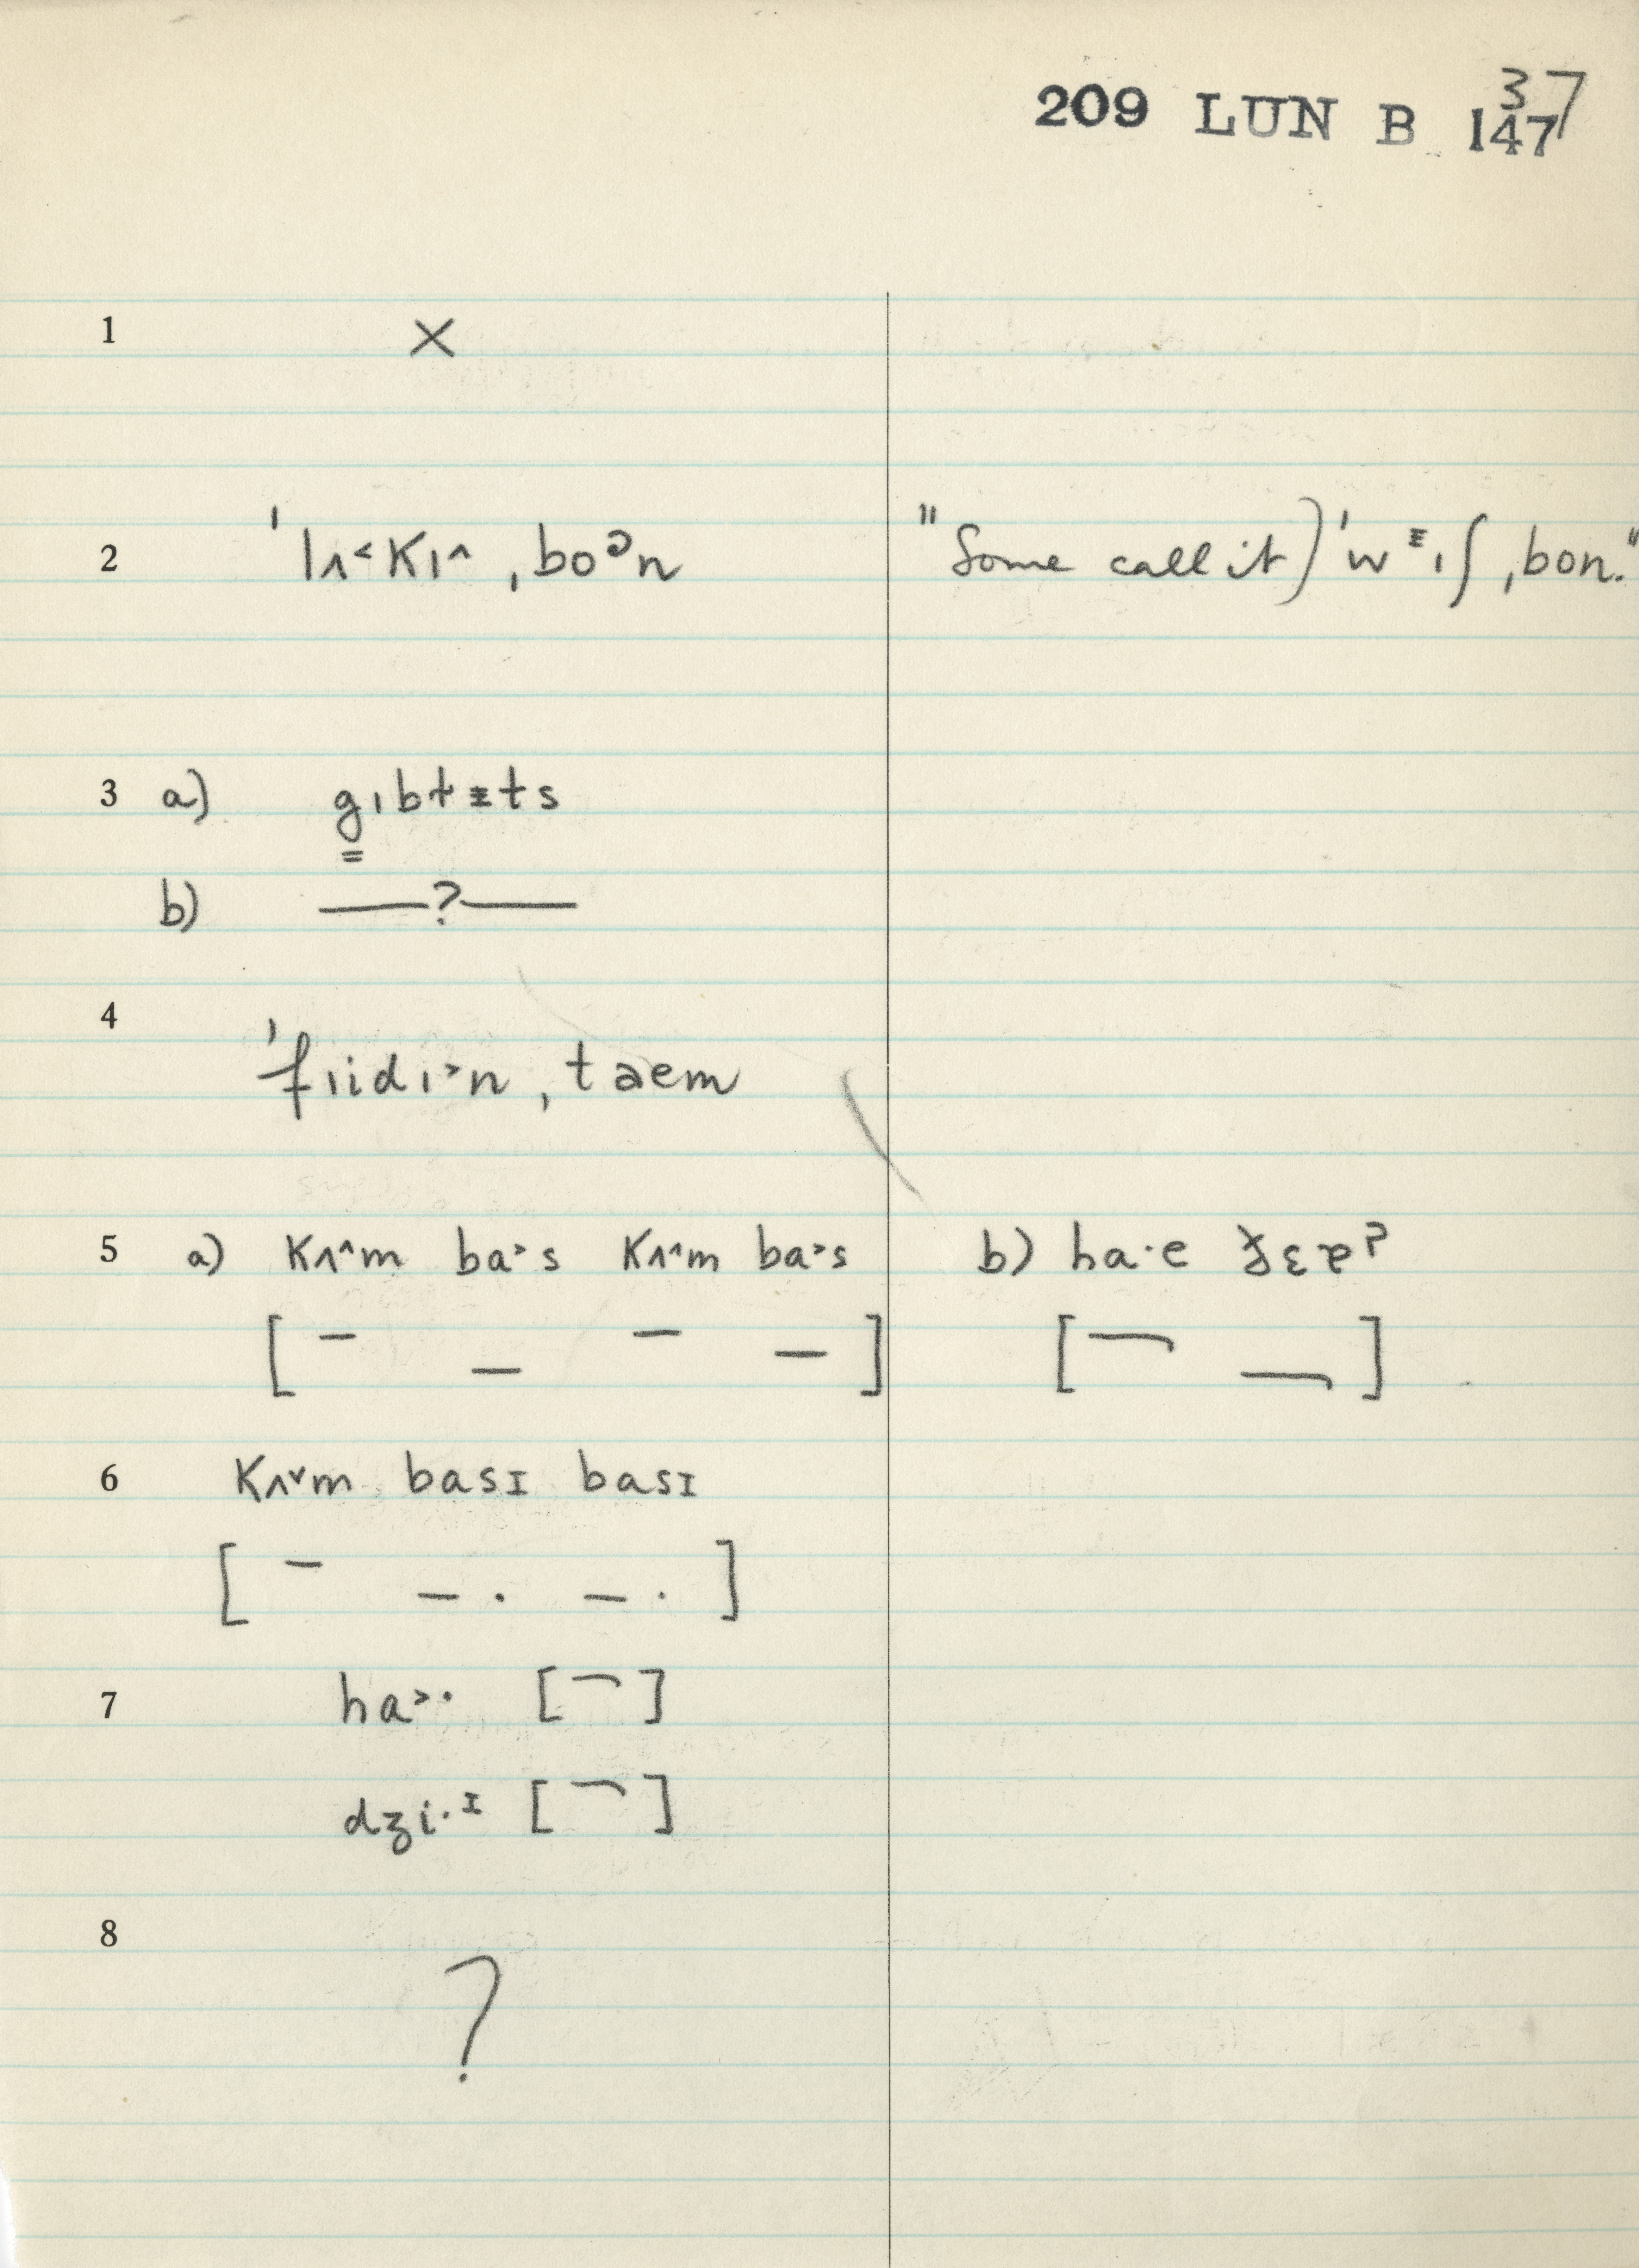 209 LUN B 147
37
1 ×
2 ˈlʌ˂kɪ˄ ˌboᵊn "(Some call it) ˈwᵻɪʃ ˌbon."
3 a) g̳ɪbɫᵻts
b) —?—
4 ˈfɪidɪ˃n ˌtaem
5 a) kʌ˄m ba˃s kʌ˄m ba˃s b) ha·e
[ – _ – – ] [ ¬ ¬ ]
6 kʌ˅m basɪ basɪ
[ – – · – · ]
7 ha˃· [ ¬ ]
dʒi·ᶦ [ ¬ ]
8 ?